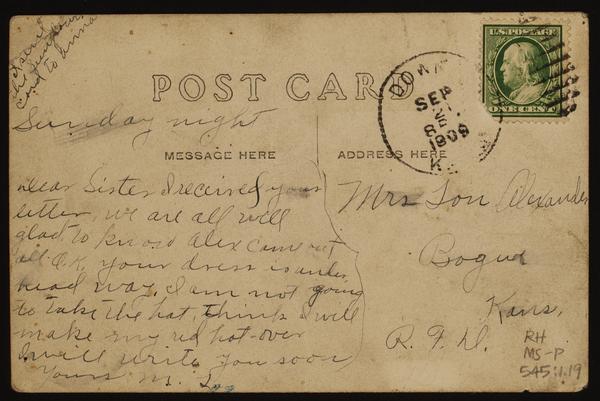 to Anna
U.S. POSTAGE
ONE CENT
POST CARD
DOWN
SEP
8
1909
Sunday night
MESSAGE HERE
ADDRESS HERE
Dear Sister I received your
letter, we are all well
glad to know Alex came out
all O.K. your dress is under
head way, I am not going
to take the hat, think I will
make my red hat over
I will write you soon
Yours
Mrs Lon Alexander
Bogue
Kans,
R. F. D.
RH
MS-P
545:1.19